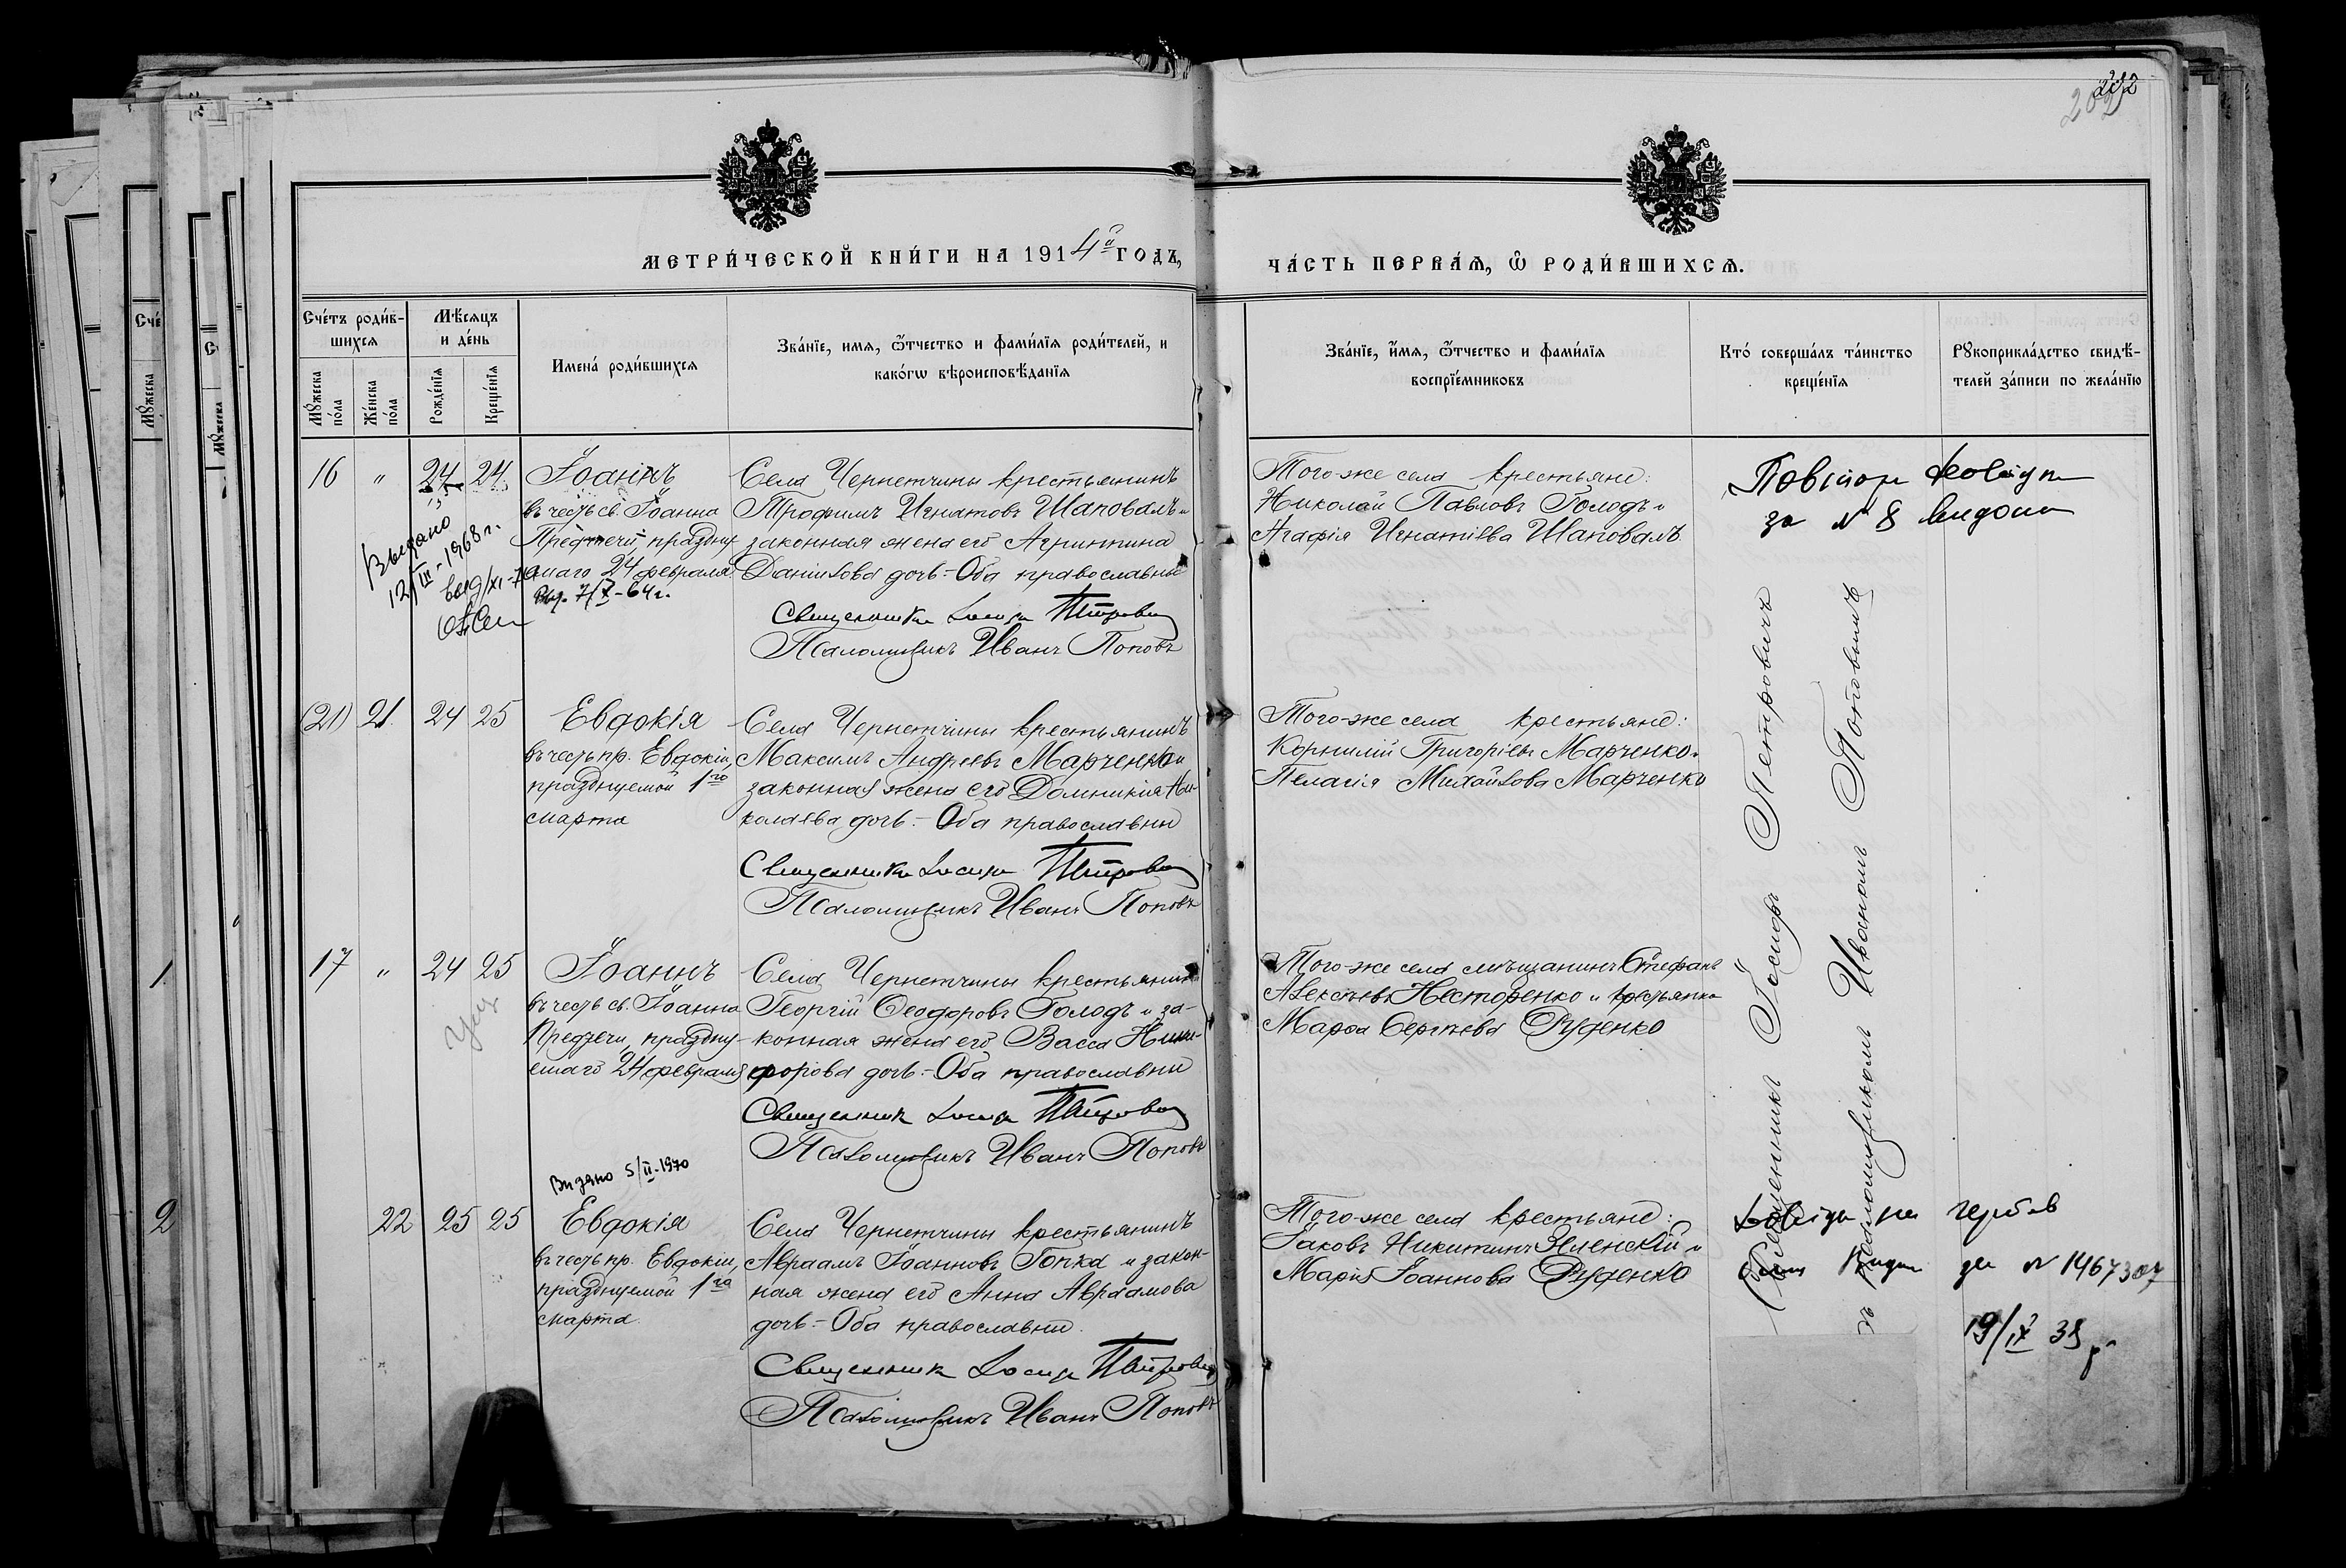 232
202
МЕТРИ́ЧЕСКОЙ КНИ́ГИ НА 1914й ГОДЪ,
ЧА́СТЬ ПЕРВА́Ѧ, Ѡ҆ РОДИ́ВШИХСѦ.
Сче́тъ роди́в-
шихсѧ
Мꙋ́жеска по́ла
Же́нска по́ла
Мѣ́сяцъ
и де́нь
Рожде́нїѧ
Креще́нїѧ
Имена́ роди́вшихсѧ
Зва́нїе, и́мѧ, ѻ҆́тчество и фами́лїѧ роди́телей, и
како́гѡ вѣроисповѣ́данїѧ
Зва́нїе, и́мѧ, ѻ҆́тчество и фами́лїѧ
воспрїе́мниковъ
Кто́ соверша́лъ та́инство
креще́нїѧ
Рꙋкоприкла́дство свидѣ́-
телей за́писи по жела́нїю
16 " 24 24 Іоаннъ
въ честь св. Іоанна
Предтечи, праздну-
емаго 24 февраля.
Выдано
12/III-1968 г.
Выд. 7/X-64 г.
Села Чернетчины крестьянинъ
Трофимъ Игнатовъ Шаповалъ и
законная жена его Агриппина
Даніилова дочь.- Оба православны
Священникъ Іосифъ Петровичъ
Псаломщикъ Иванъ Поповъ
Того-же села крестьяне:
Николай Павловъ Голодъ и
Агафія Игнатіева Шаповалъ.
за № 8
(21) 21. 24 25 Евдокія
въ честь пр. Евдокіи,
празднуемой 1го
марта
Села Чернетчины крестьянинъ
Максимъ Андреевъ Марченко и
законная жена его Домникія Ни-
колаева дочь.- Оба православны
Священникъ Іосифъ Петровичъ
Псаломщикъ Иванъ Поповъ
Того-же села крестьяне:
Корнилій Григоріевъ Марченко и
Пелагія Михайлова Марченко
17 " 24 25 Іоаннъ
въ честь св. Іоанна
Предтечи, праздну-
емаго 24 февраля
Села Чернетчины крестьянинъ
Георгій Ѳеодоровъ Голодъ и за-
конная жена его Васса Ники-
форова дочь.- Оба православны
Священникъ Іосифъ Петровичъ
Псаломщикъ Иванъ Поповъ
Того-же села мѣщанинъ Стефанъ
Алексѣевъ Несторенко и крестьянка
Марѳа Сергѣева Руденко
Видано 5/II-1970
22 25 25 Евдокія
въ честь пр. Евдокіи,
празднуемой 1го
марта.
Села Чернетчины крестьянинъ
Авраамъ Іоанновъ Гопка и закон-
ная жена его Анна Авраамова
дочь.- Оба православны.
Священникъ Іосифъ Петровичъ
Псаломщикъ Иванъ Поповъ
Того-же села крестьяне:
Іаковъ Никитинъ Зленскій и
Марія Іоаннова Руденко
Священникъ Іосифъ Петровичъ
съ псаломщикомъ Иваномъ Поповымъ
за № 1467307
19/IX 38 р